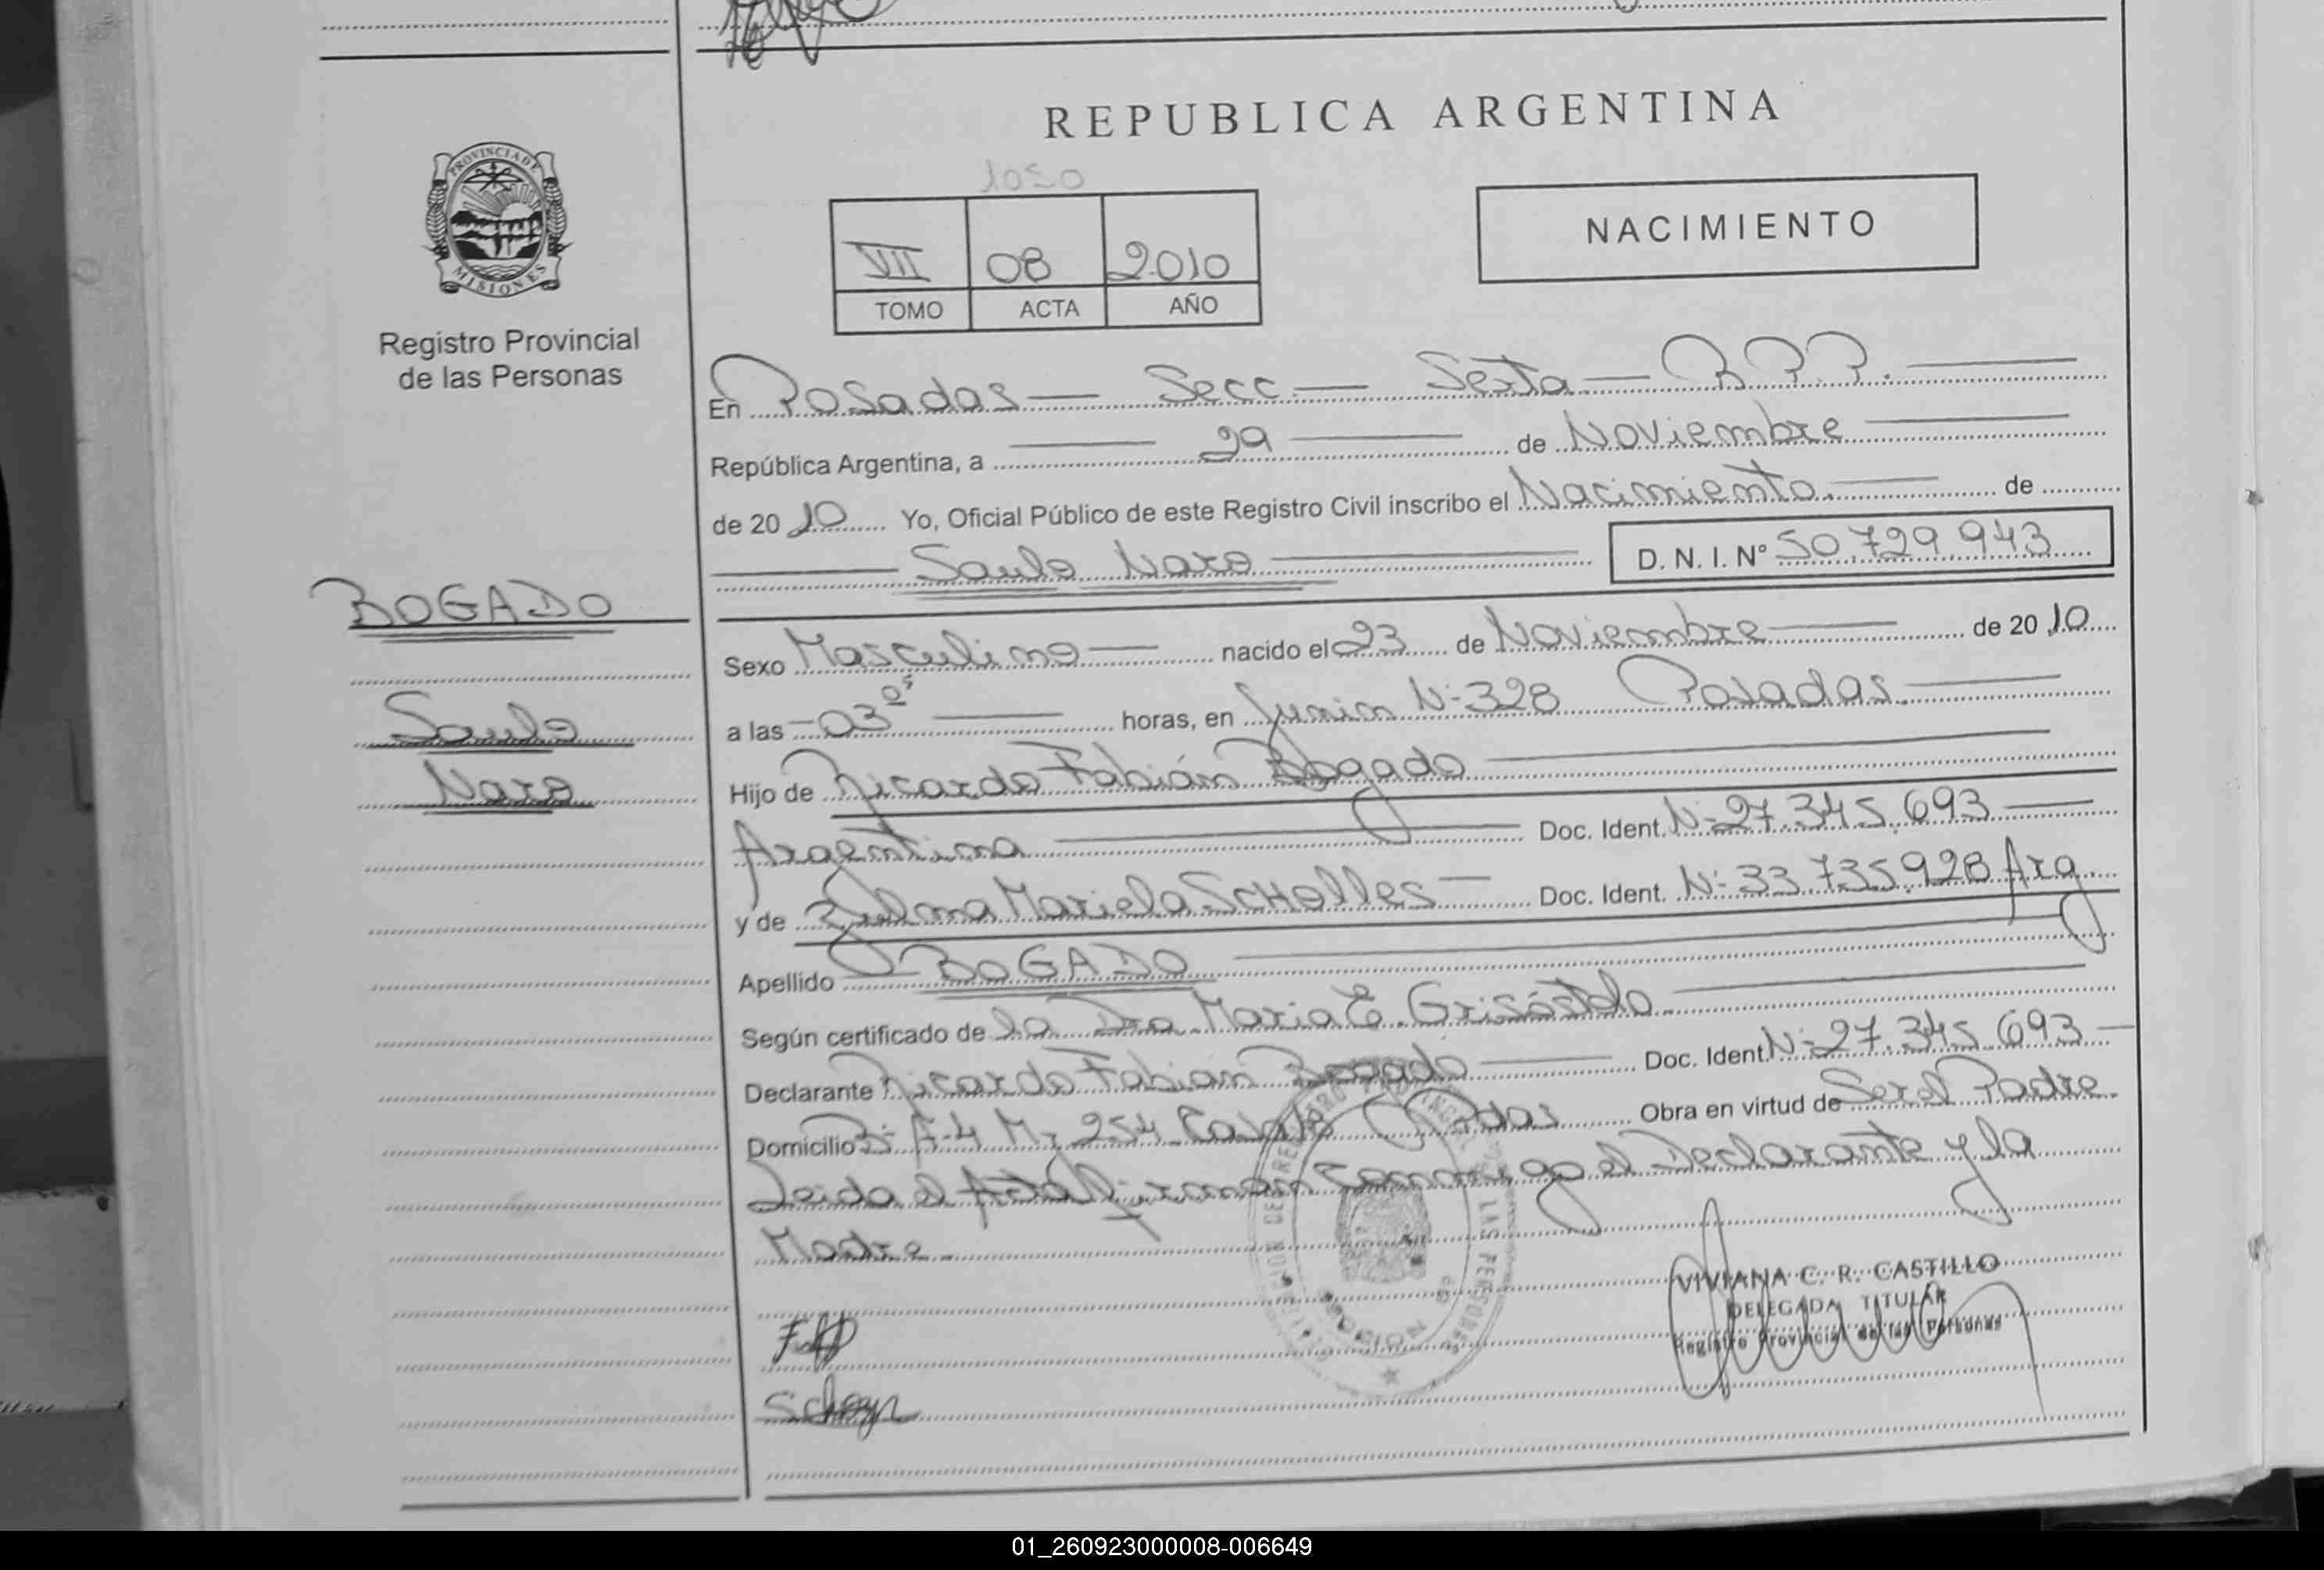 REPUBLICA ARGENTINA
1050
NACIMIENTO
VII 08 2010
TOMO ACTA AÑO
PROVINCIA DE MISIONES
Registro Provincial
de las Personas
En Posadas — Secc — Sexta — R.P.P.
República Argentina, a 29 de Noviembre
de 2010 Yo, Oficial Público de este Registro Civil inscribo el Nacimiento. de
Saulo Naro
D. N. I. Nº 50.729.943
BOGADO
Saulo
Naro
Sexo Masculino nacido el 23 de Noviembre de 2010
a las 03 05 horas, en Junin Nº 328 Posadas.
Hijo de Ricardo Fabián Bogado
Argentina Doc. Ident. Nº 27.345.693
y de Zulma Mariela Doc. Ident. Nº 33.735.928 Arg.
Apellido BOGADO
Según certificado de la Dra Maria E.
Declarante Ricardo Fabián Bogado Doc. Ident. Nº 27.345.693
Domicilio Obra en virtud de Ser el Padre
Leida el Acta firman conmigo el Declarante y la
Madre.
VIVIANA C. R. CASTILLO
DELEGADA TITULAR
Registro Provincial de las Personas
01_260923000008-006649